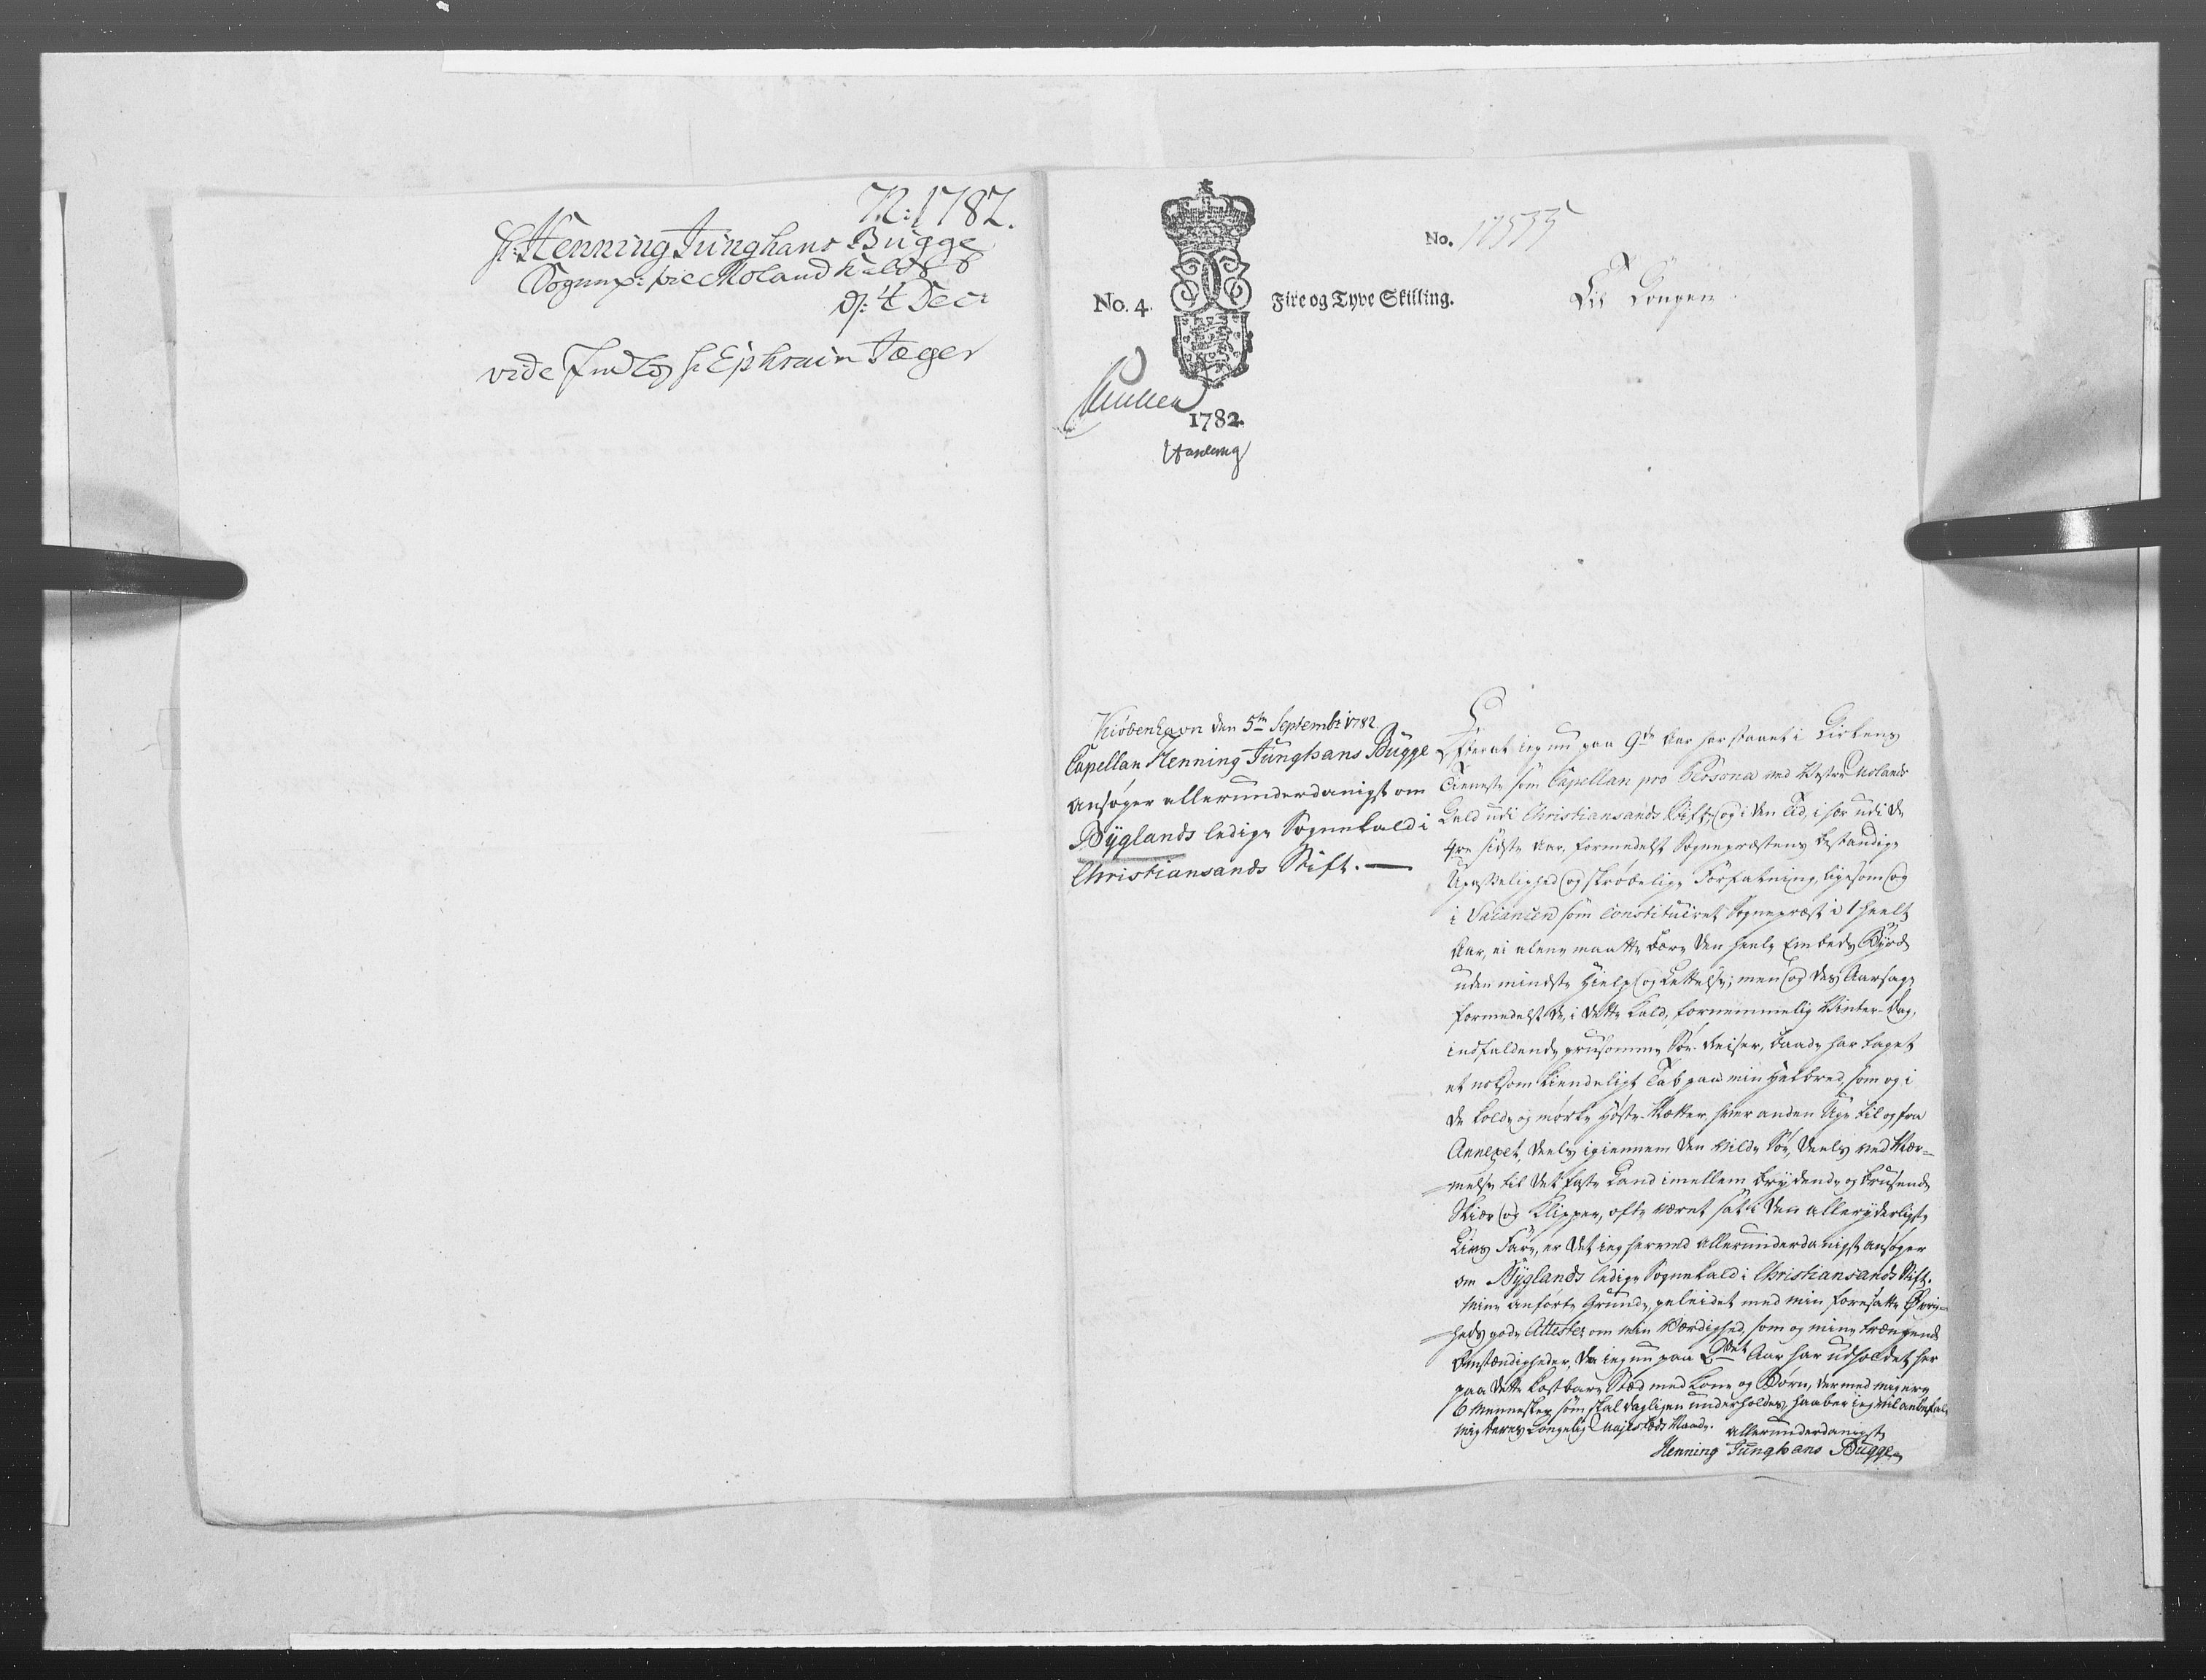 N: 1782.
Hr: Henning Junghans Bugge
Sognepr: til Moland Kald
d: 4 Dec:
vide Indlæg Hr Ephraim Jæger
No. 4.
Fire og Tyve Skilling.
1782.
No. 17535
Til Kongen
Kiøbenhavn den 5te Septembr 1782.
Capellan Henning Junghans Bugge
ansøger allerunderdanigst om
Byglands ledige Sognekald i
Christiansands Stift. —
Efterat jeg nu paa 9de Aar har staaet i Kirkens
Tieneste som Capellan pro Persona ved Vestre Molands
Kald udi Christiansands Stift, og i den Tid, i sær udi de
4re sidste Aar, formedelst Sognepræstens bestandige
Upasselighed og skrøbelige Forfatning, ligesom og
i Vacancen som constitueret Sognepræst i 1 heelt
Aar, ei alene maatte bære den heele Embeds Byrde
uden mindste Hielp og Lettelse; men og des Aarsage
formedelst de, i dette Kald, fornemmelig Vinter-Dag,
indfaldende grusomme Søe-Reiser, baade har taget
et noksom kiendeligt Tab paa min Helbred, som og i
de kolde og mørke Høste-Nætter hver anden Uge til og fra
Annexet, deels igiennem den vilde Søe, deels ved Nær-
melse til det faste Land imellem brydende og brusende
Skiær og Klipper, ofte været sat i den alleryderligste
Livs Fare, er det jeg herved allerunderdanigst ansøger
om Byglands ledige Sognekald i Christiansands Stift.
Mine anførte Grunde, geleidet med min foresatte Øvrig-
heds gode Attester om min Værdighed, som og mine trængende
Omstændigheder, da jeg nu paa 2det Aar har udholdet her
paa dette kostbare Stæd med Kone og Børn, der med mig ere
6 Mennesker som skal dagligen underholdes, haaber jeg vil anbefale
mig Deres Kongelig Majestæts Naade. allerunderdanigst
Henning Junghans Bugge